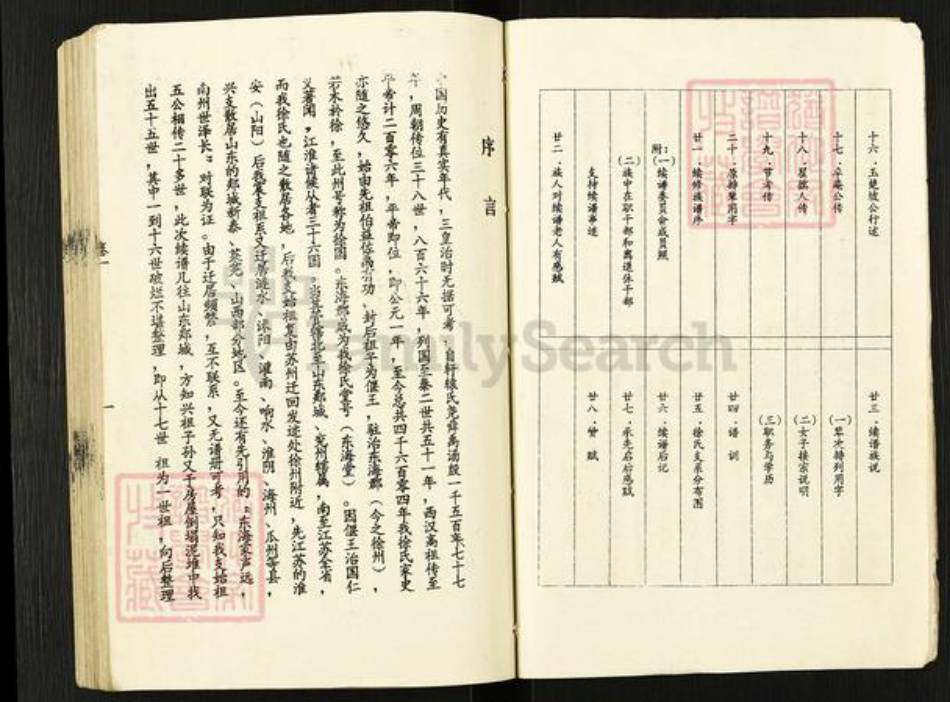 十六．玉楚坡公行述
十七．辛庵公传
十八．星孺人传
十九．节孝传
二十．原排辈用字
廿一．续修族谱序
附：(一)续谱委员会成员照
(二)族中在职干部和离退休干部
支持续谱事迹
廿二．族人对续谱老人有感赋
廿三．续谱族说
(一)辈次排列用字
(二)女子接宗说明
(三)职务与学历
廿四．谱训
廿五．徐氏支系分布图
廿六．续谱后记
廿七．承先启后感赋
廿八．赞赋
序言
中国历史有真实年代，三皇治时无据可考，自轩辕氏尧舜禹汤殷一千五百年七十七
年，周朝传位三十八世，八百六十六年，列国至秦二世共五十一年，西汉高祖传至
平帝计二百零六年，平帝即位，即公元一年，至今总共四千六百零四年我徐氏家史
亦随之悠久，始由先祖伯益佐禹有功、封后祖子为偃王，驻治东海郡（今之徐州），
若木於徐，至此州号称为徐国。东海郡成为我徐氏堂号（东海堂）。因偃王治国仁
义著闻，江淮诸候从者三十六国。当其居辖北至山东郯城、兖州辖属，南至江苏全省，
而我徐氏也随之散居各地，后我支始祖复由苏州迁回发迹处徐州附近，先江苏的淮
安（山阳）后我蒙支祖系又迁居涟水、沭阳、灌南、响水、淮阴、海州、瓜州等县，
兴支散居山东的郯城新泰、莱芜、山西部分地区。至今还有先引用的：东海家声远，
南州世泽长：对联为证。由于迁居频繁，互不联系，又无谱册可考，只知我支始祖
五公相传二十多世，此次续谱几往山东郯城，方知兴祖子孙又于房屋倒塌泥堆中找
出五十五世，其中一到十六世破烂不堪整理，即从十七世 祖为一世祖，向后整理
卷一
一
FamilySearch